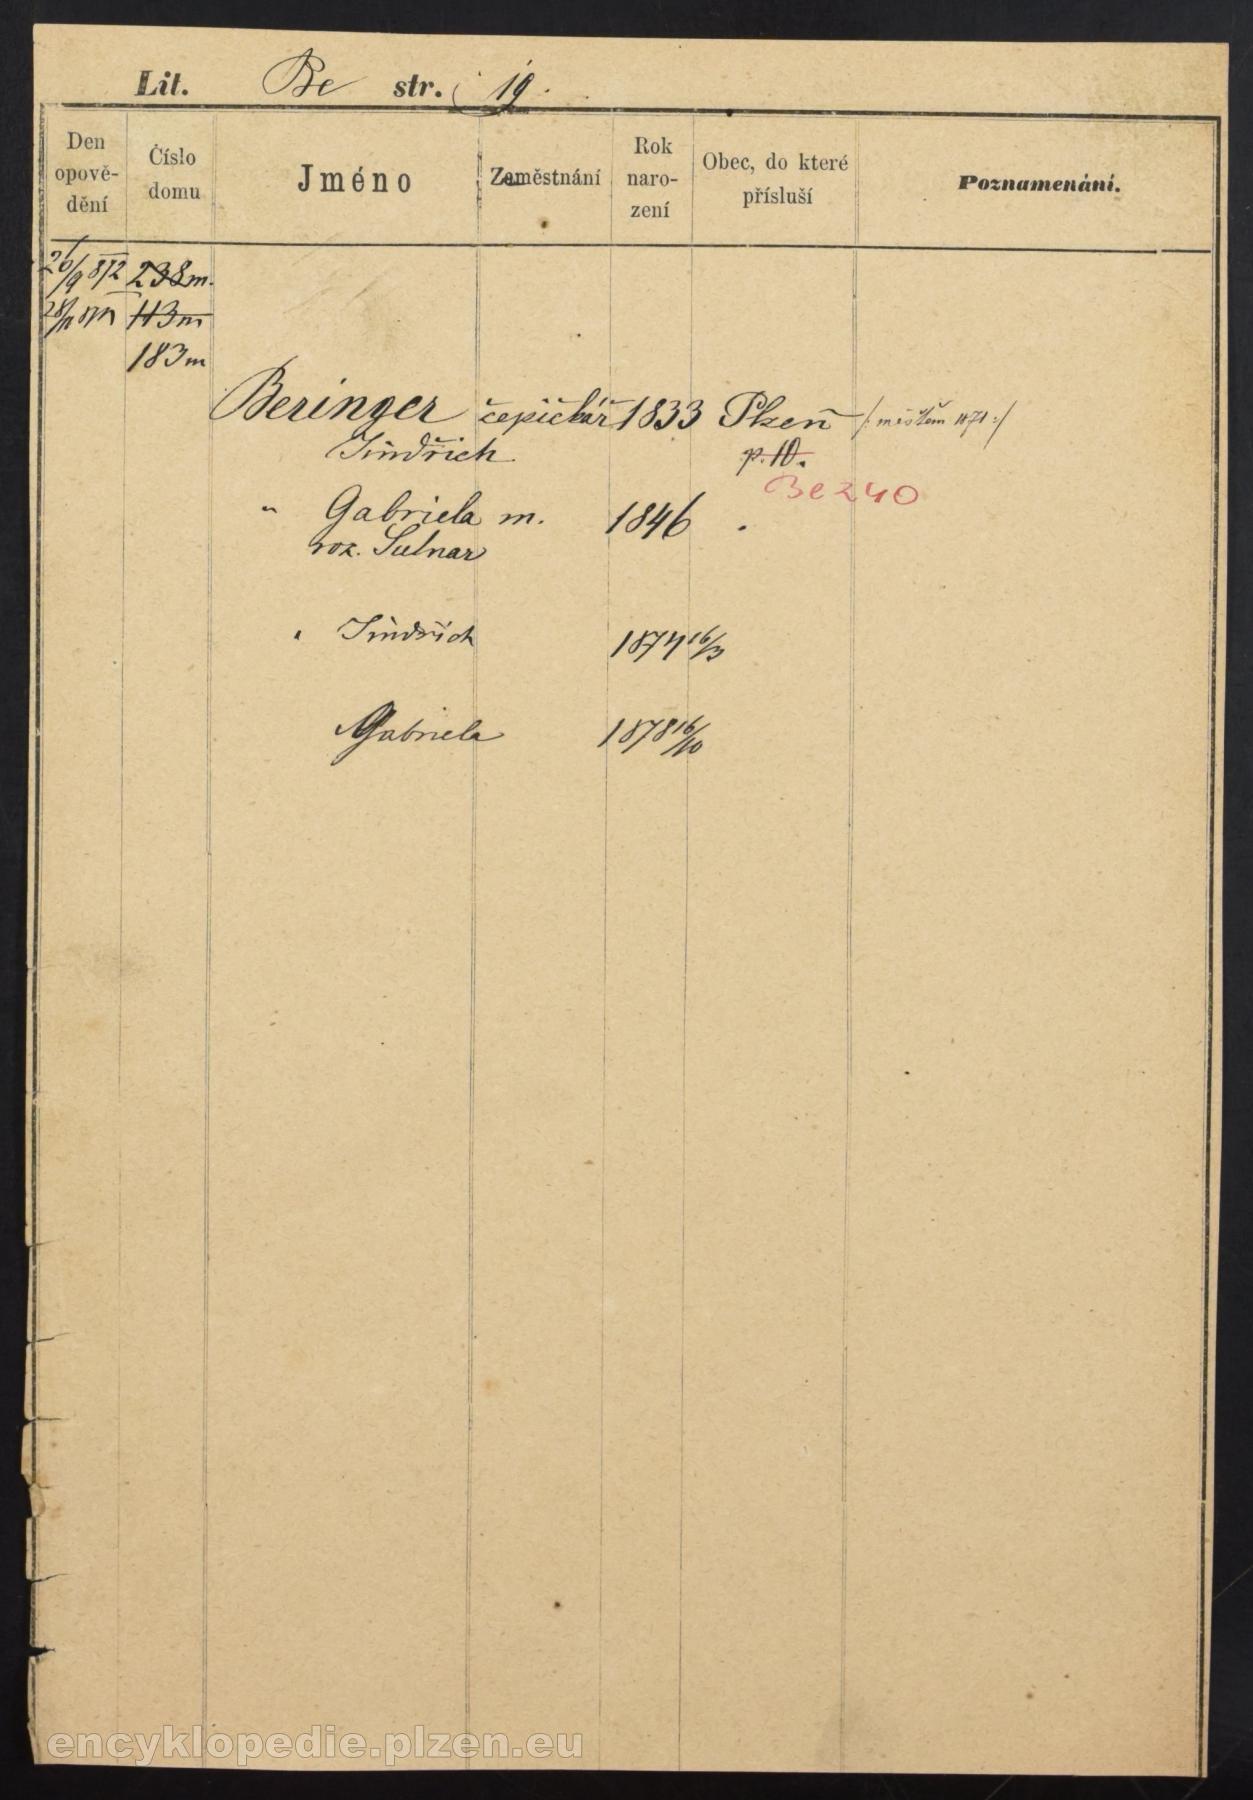 Lit. Be str. 19.
Den opově- dění
Číslo domu
Jméno
Zaměstnání
Rok naro- zení
Obec, do které přísluší
Poznamenání.
26/9 872 238 m.
113 m
183 m
Beringer čepičkář 1833 Plzeň /: měštěm 1871 :/
Jindřich p. 10.
Be 240
" Gabriela m. 1846 "
roz. Sulnar
" Jindřich 1874 16/3
Gabriela 1878 16/10
encyklopedie.plzen.eu